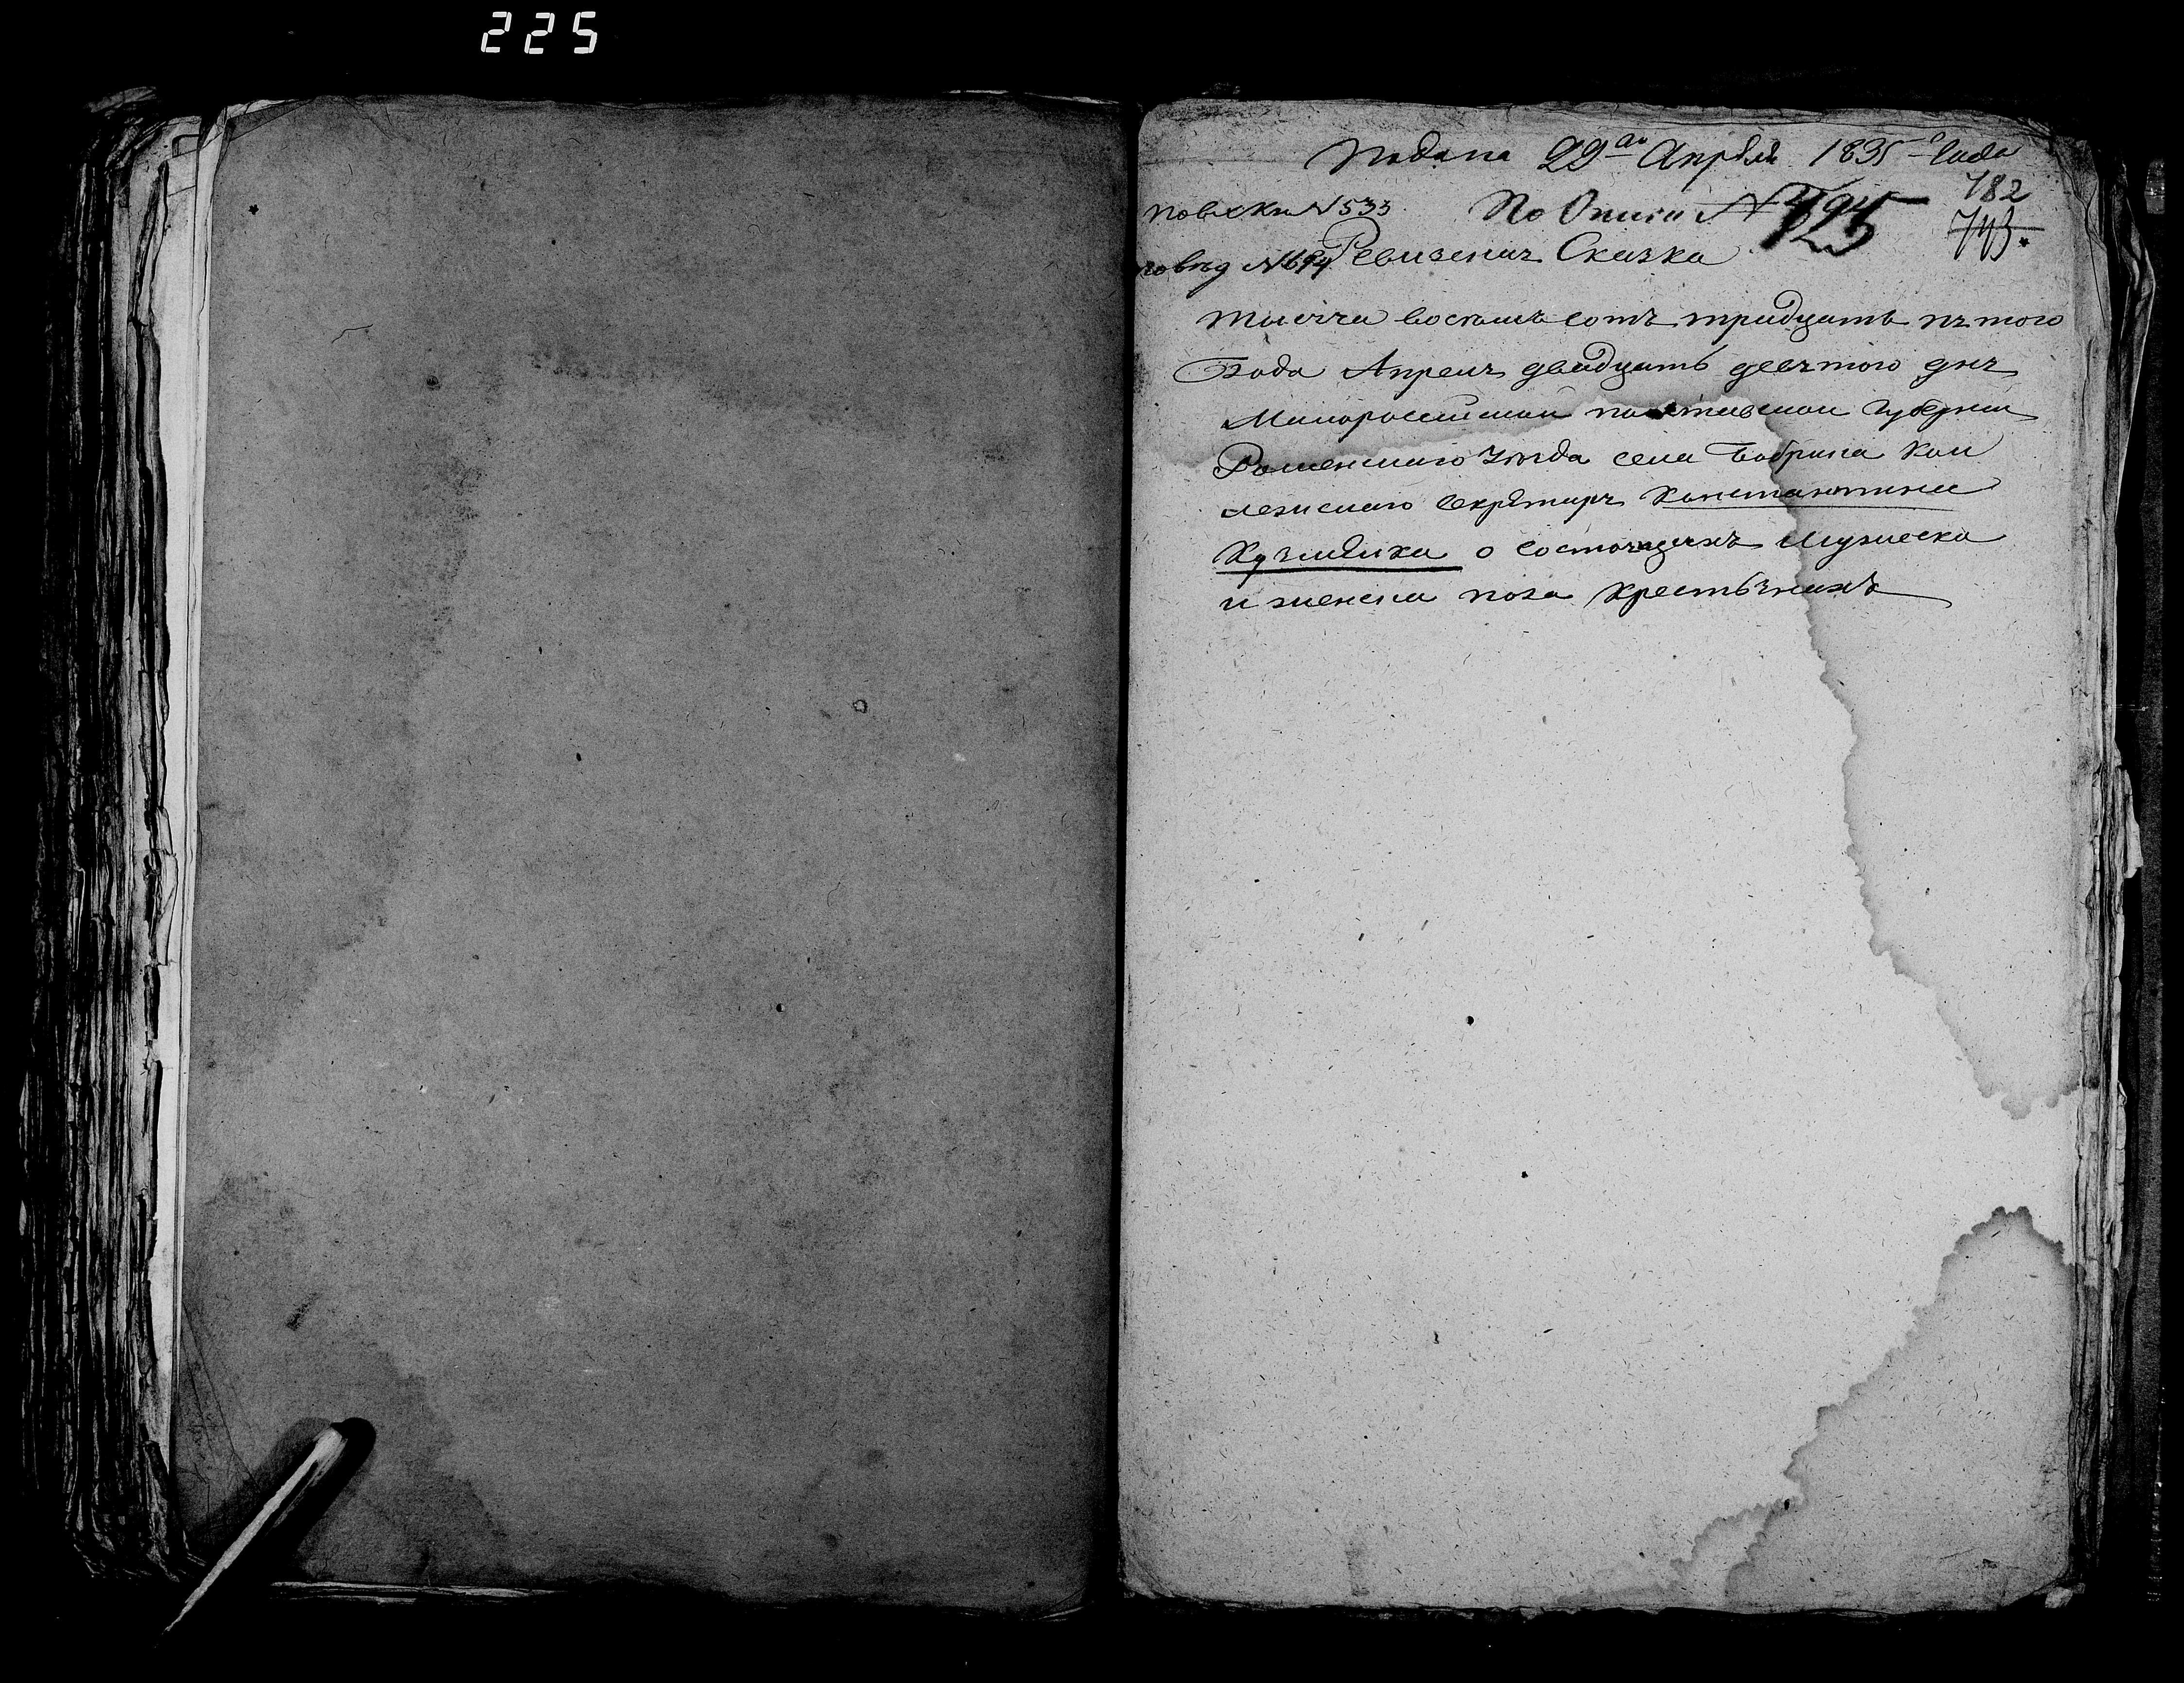 225
Подана 29го Апреля 1835 года
782
по вх кн N 533 По Описи N 125
743.
по вѣд N 694 Ревизская Сказка
тысяча восемь сотъ тридцать пятого
Года Апреля двадцать девятого дня
Малороссийской полтавской губернии
Роменского уезда села Бобрика кол
лежского секретаря Константина
о состоящихъ мужеска
и женска пола крестьянахъ